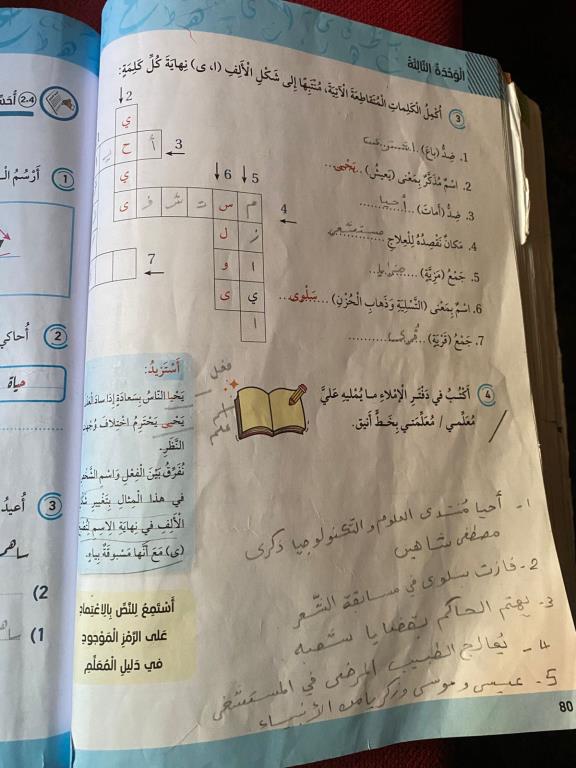 الْوَحْدَةُ الثّالِثَةُ
3 أُكْمِلُ الْكَلِماتِ الْمُتَقاطِعَةَ الْآتِيَةَ، مُنْتَبِهًا إِلى شَكْلِ الْأَلِفِ (ا، ى) نِهايَةَ كُلِّ كَلِمَةٍ:
1. ضِدُّ (باعَ)
2. اسْمٌ مُذَكَّرٌ بِمَعْنى (يَعيشُ) يَحْيى
3. ضِدُّ (أَماتَ) أحيا
4. مَكانٌ نَقْصِدُهُ لِلْعِلاجِ مستشفى
5. جَمْعُ (مَزِيَّة) مزايا
6. اسْمٌ بِمَعْنى (التَّسْلِيَةِ وَذَهابِ الْحُزْنِ) سَلْوى
7. جَمْعُ (قَرْيَة) قُرى
2
ي
3
أ ح ي
ي
6 5
4
م س ت ش ف ى
ز ل
ا و
ي ى
ا
7
4 أَكْتُبُ في دَفْتَرِ الْإِمْلاءِ ما يُمْليهِ عَلَيَّ
مُعَلِّمي / مُعَلِّمَتي بِخَطٍّ أَنيقٍ.
فعل
اسم علم
أَسْتَزيدُ:
يَحْيا النّاسُ بِسَعادَةٍ إِذا سادَ
يَحْيى يَحْتَرِمُ اخْتِلافَ
النَّظَرِ.
نُفَرِّقُ بَيْنَ الْفِعْلِ وَاسْمِ
في هذا الْمِثالِ بِتَغْييرِ
الْأَلِفِ في نِهايَةِ الِاسْمِ
(ى) مَعَ أَنَّها مَسْبوقَةٌ بِياءٍ.
أَسْتَمِعُ لِلنَّصِّ بِالِاعْتِمادِ
عَلى الرَّمْزِ الْمَوْجودِ
في دَليلِ الْمُعَلِّمِ
1- أحيا مُنتدى العلوم والتكنولوجيا ذكرى
مصطفى شاهين
2- فازت سلوى في مسابقة الشّعر
3- يهتم الحاكم بقضايا شعبه
4- يُعالج الطبيب المرضى في المستشفى
5- عيسى وموسى وزكريا من الأنبياء
80
2.4
1 أَرْسُمُ
2 أُحاكي
حياة
3 أُعيدُ
(2
(1